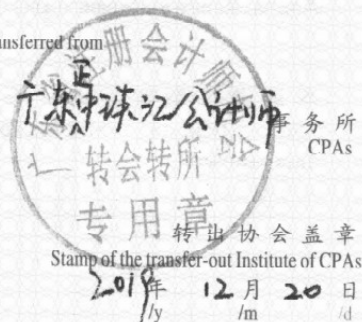 ansferred from
正
广东中珠江会计师事务所
CPAs
广东省注册会计师协会
转会转所
专用章
转出协会盖章
Stamp of the transfer-out Institute of CPAs
2019年 12月 20日
/y /m /d